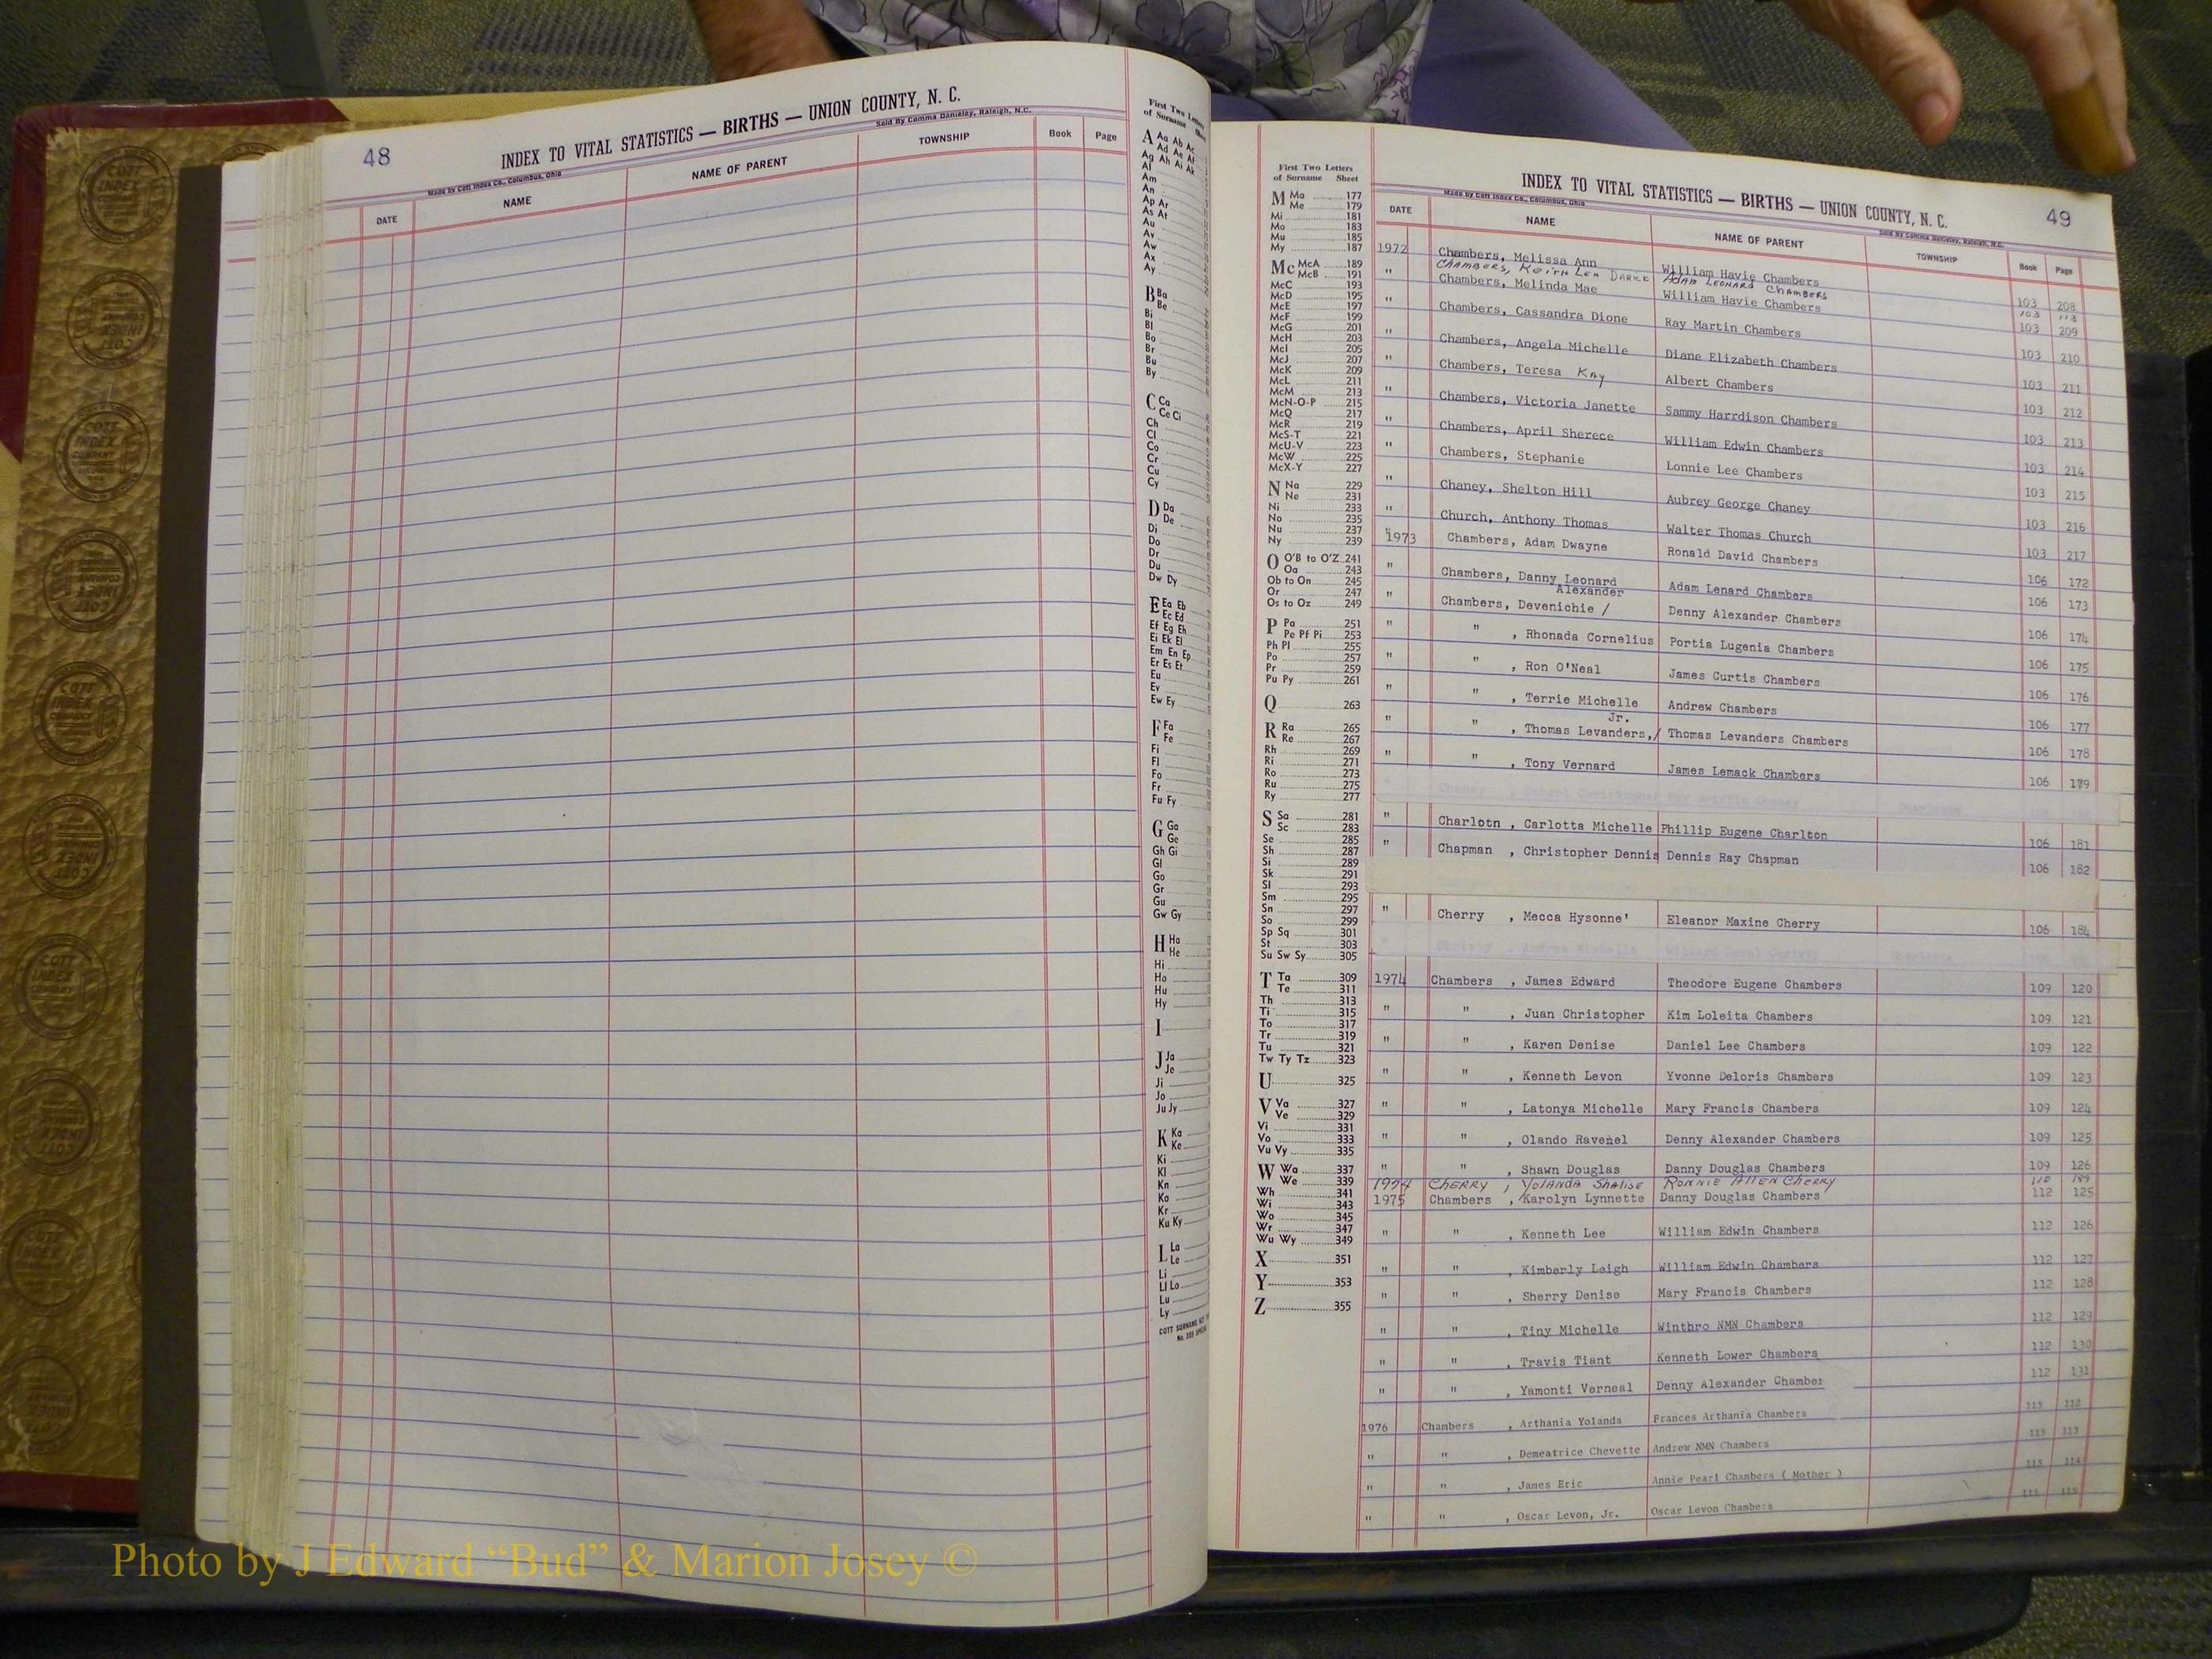 48
INDEX TO VITAL STATISTICS — BIRTHS — UNION COUNTY, N. C.
Made by Cott Index Co., Columbus, Ohio
Sold By Comma Danieley, Raleigh, N.C.
DATE NAME NAME OF PARENT TOWNSHIP Book Page
First Two Letters
of Surname
A Aa Ab Ac
Ad Ae Af
Ag Ah Ai Ak
Al
Am
An
Ap Ar
As At
Au
Av
Aw
Ax
Ay
B Ba
Be
Bi
Bl
Bo
Br
Bu
By
C Ca
Ce Ci
Ch
Cl
Co
Cr
Cu
Cy
D Da
De
Di
Do
Dr
Du
Dw Dy
E Ea Eb
Ec Ed
Ef Eg Eh
Ei Ek El
Em En Ep
Er Es Et
Eu
Ev
Ew Ey
F Fa
Fe
Fi
Fl
Fo
Fr
Fu Fy
G Ga
Ge
Gh Gi
Gl
Go
Gr
Gu
Gw Gy
H Ha
He
Hi
Ho
Hu
Hy
I
J Ja
Je
Ji
Jo
Ju Jy
K Ka
Ke
Ki
Kl
Kn
Ko
Kr
Ku Ky
L La
Le
Li
Ll Lo
Lu
Ly
First Two Letters
of Surname Sheet
M Ma 177
Me 179
Mi 181
Mo 183
Mu 185
My 187
Mc McA 189
McB 191
McC 193
McD 195
McE 197
McF 199
McG 201
McH 203
McI 205
McJ 207
McK 209
McL 211
McM 213
McN-O-P 215
McQ 217
McR 219
McS-T 221
McU-V 223
McW 225
McX-Y 227
N Na 229
Ne 231
Ni 233
No 235
Nu 237
Ny 239
O O'B to O'Z 241
Oa 243
Ob to On 245
Or 247
Os to Oz 249
P Pa 251
Pe Pf Pi 253
Ph Pl 255
Po 257
Pr 259
Pu Py 261
Q 263
R Ra 265
Re 267
Rh 269
Ri 271
Ro 273
Ru 275
Ry 277
S Sa 281
Sc 283
Se 285
Sh 287
Si 289
Sk 291
Sl 293
Sm 295
Sn 297
So 299
Sp Sq 301
St 303
Su Sw Sy 305
T Ta 309
Te 311
Th 313
Ti 315
To 317
Tr 319
Tu 321
Tw Ty Tz 323
U 325
V Va 327
Ve 329
Vi 331
Vo 333
Vu Vy 335
W Wa 337
We 339
Wh 341
Wi 343
Wo 345
Wr 347
Wu Wy 349
X 351
Y 353
Z 355
INDEX TO VITAL STATISTICS — BIRTHS — UNION COUNTY, N. C.
49
Made by Cott Index Co., Columbus, Ohio
Sold By Comma Danieley, Raleigh, N.C.
DATE NAME NAME OF PARENT TOWNSHIP Book Page
1972 Chambers, Melissa Ann William Havie Chambers 103 208
CHAMBERS, KEITH LEN DAREK ADAM LEONARD CHAMBERS 103 113
" Chambers, Melinda Mae William Havie Chambers 103 209
" Chambers, Cassandra Dione Ray Martin Chambers 103 210
" Chambers, Angela Michelle Diane Elizabeth Chambers 103 211
" Chambers, Teresa Kay Albert Chambers 103 212
" Chambers, Victoria Janette Sammy Harrdison Chambers 103 213
" Chambers, April Sherece William Edwin Chambers 103 214
" Chambers, Stephanie Lonnie Lee Chambers 103 215
" Chaney, Shelton Hill Aubrey George Chaney 103 216
" Church, Anthony Thomas Walter Thomas Church 103 217
1973 Chambers, Adam Dwayne Ronald David Chambers 106 172
" Chambers, Danny Leonard Adam Lenard Chambers 106 173
Alexander
" Chambers, Devenichie / Denny Alexander Chambers 106 174
" " , Rhonada Cornelius Portia Lugenia Chambers 106 175
" " , Ron O'Neal James Curtis Chambers 106 176
" " , Terrie Michelle Andrew Chambers 106 177
Jr.
" " , Thomas Levanders,/ Thomas Levanders Chambers 106 178
" " , Tony Vernard James Lemack Chambers 106 179
" Charlotn , Carlotta Michelle Phillip Eugene Charlton 106 181
" Chapman , Christopher Dennis Dennis Ray Chapman 106 182
" Cherry , Mecca Hysonne' Eleanor Maxine Cherry 106 184
1974 Chambers , James Edward Theodore Eugene Chambers 109 120
" " , Juan Christopher Kim Loleita Chambers 109 121
" " , Karen Denise Daniel Lee Chambers 109 122
" " , Kenneth Levon Yvonne Deloris Chambers 109 123
" " , Latonya Michelle Mary Francis Chambers 109 124
" " , Olando Ravenel Denny Alexander Chambers 109 125
" " , Shawn Douglas Danny Douglas Chambers 109 126
1974 CHERRY , YOLANDA SHALISE RONNIE ALLEN CHERRY 110
1975 Chambers , Karolyn Lynnette Danny Douglas Chambers 112 125
" " , Kenneth Lee William Edwin Chambers 112 126
" " , Kimberly Leigh William Edwin Chambers 112 127
" " , Sherry Denise Mary Francis Chambers 112 128
" " , Tiny Michelle Winthro NMN Chambers 112 129
" " , Travis Tiant Kenneth Lower Chambers 112 130
" " , Yamonti Verneal Denny Alexander Chamber 112 131
1976 Chambers , Arthania Yolanda Frances Arthania Chambers 115 112
" " , Demeatrice Chevette Andrew NMN Chambers 115 113
" " , James Eric Annie Pearl Chambers ( Mother ) 115 114
" " , Oscar Levon, Jr. Oscar Levon Chambers 115 115
Photo by J Edward “Bud” & Marion Josey ©